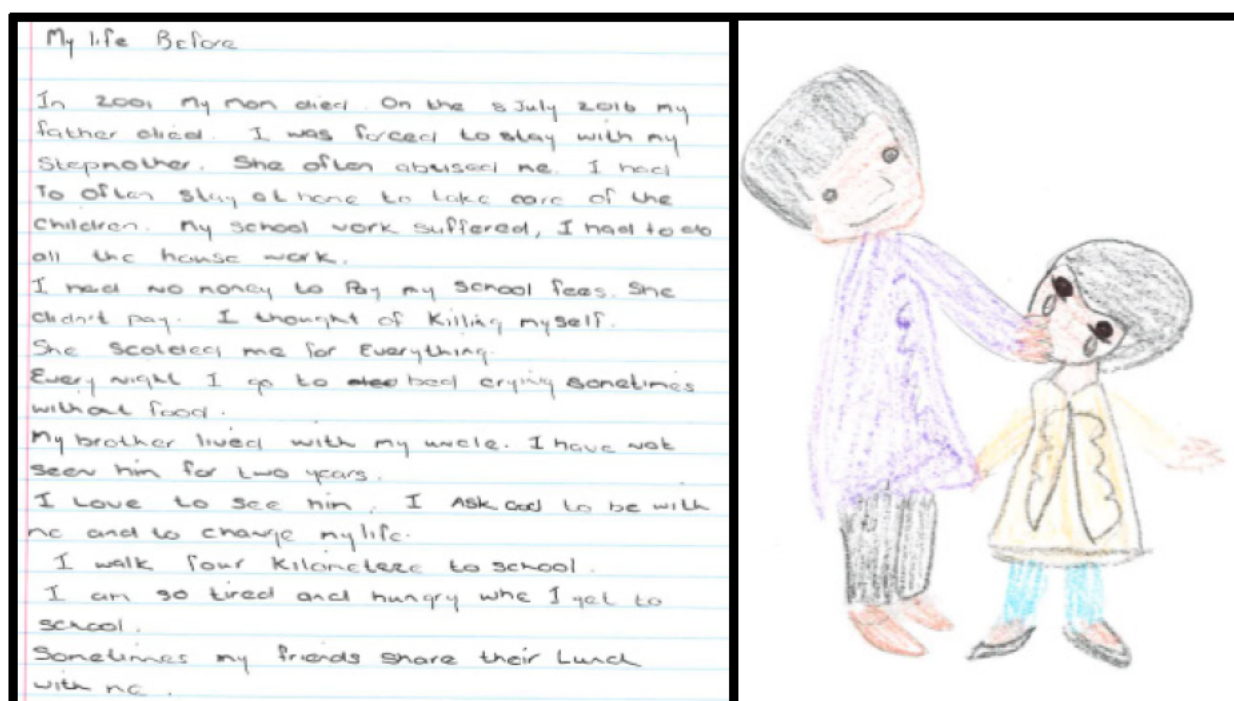 My life Before
In 2001 my mom died. On the 8 July 2016 my
father died. I was forced to stay with my
Stepmother. She often abused me. I had
To often stay at home to take care of the
children. My school work suffered, I had to do
all the house work.
I had no money to Pay my school fees. She
didn't pay. I thought of Killing myself.
She scolded me for Everything.
Every night I go to bed crying sometimes
without food.
My brother lived with my uncle. I have not
seen him for two years.
I Love to see him. I Ask God to be with
me and to change my life.
I walk four Kilometere to school.
I am so tired and hungry whe I get to
school.
Sometimes my friends share their Lunch
with me.